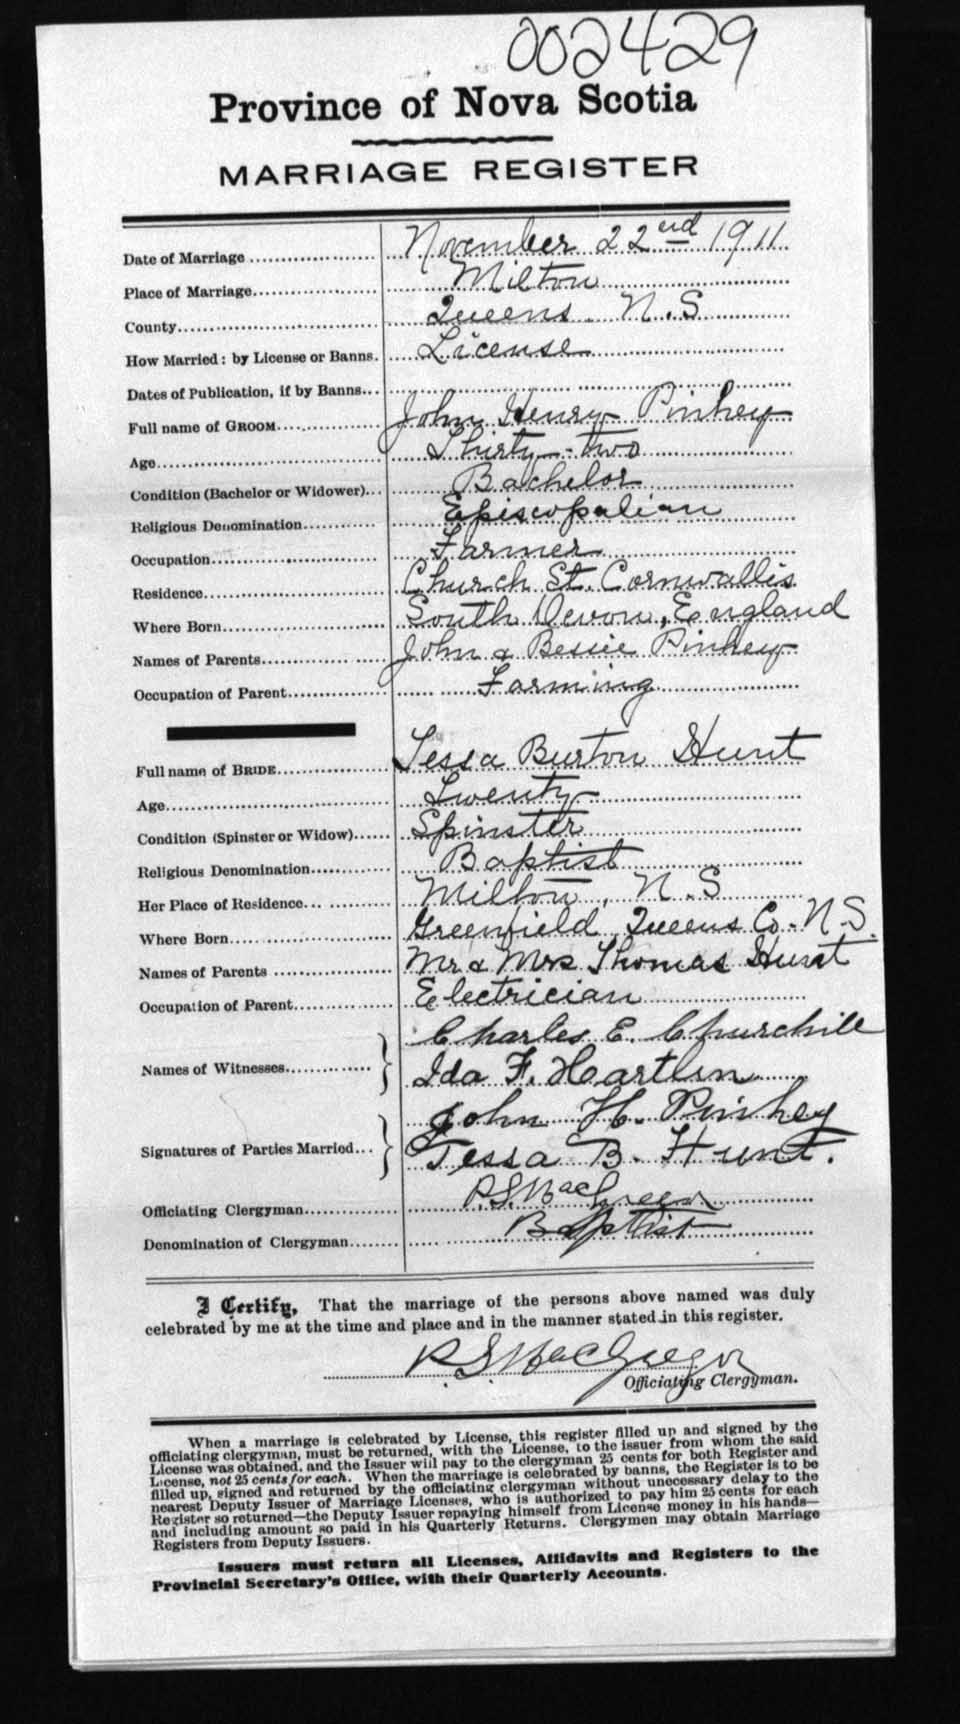 002429
Province of Nova Scotia
MARRIAGE REGISTER
Date of Marriage November 22nd 1911
Place of Marriage Milton
County Queens. N.S
How Married: by License or Banns. License
Dates of Publication, if by Banns
Full name of GROOM John Henry Pinhey
Age Thirty-two
Condition (Bachelor or Widower) Bachelor
Religious Denomination Episcopalian
Occupation Farmer
Residence Church St. Cornwallis
Where Born South Devon, England
Names of Parents John & Bessie Pinhey
Occupation of Parent Farming
Full name of BRIDE Tessa Burton Hunt
Age Twenty
Condition (Spinster or Widow) Spinster
Religious Denomination Baptist
Her Place of Residence Milton, N.S
Where Born Greenfield Queens Co. N.S.
Names of Parents Mr & Mrs Thomas Hunt
Occupation of Parent Electrician
Names of Witnesses Charles E. Churchill
Ida F. Hartlen
Signatures of Parties Married John H. Pinhey
Tessa B. Hunt.
Officiating Clergyman P.S. MacGregor
Denomination of Clergyman Baptist
I Certify, That the marriage of the persons above named was duly
celebrated by me at the time and place and in the manner stated in this register.
P.S. MacGregor
Officiating Clergyman.
When a marriage is celebrated by License, this register filled up and signed by the
officiating clergyman, must be returned, with the License, to the issuer from whom the said
License was obtained, and the Issuer will pay to the clergyman 25 cents for both Register and
License, not 25 cents for each. When the marriage is celebrated by banns, the Register is to be
filled up, signed and returned by the officiating clergyman without unnecessary delay to the
nearest Deputy Issuer of Marriage Licenses, who is authorized to pay him 25 cents for each
Register so returned—the Deputy Issuer repaying himself from License money in his hands—
and including amount so paid in his Quarterly Returns. Clergymen may obtain Marriage
Registers from Deputy Issuers.
Issuers must return all Licenses, Affidavits and Registers to the
Provincial Secretary's Office, with their Quarterly Accounts.